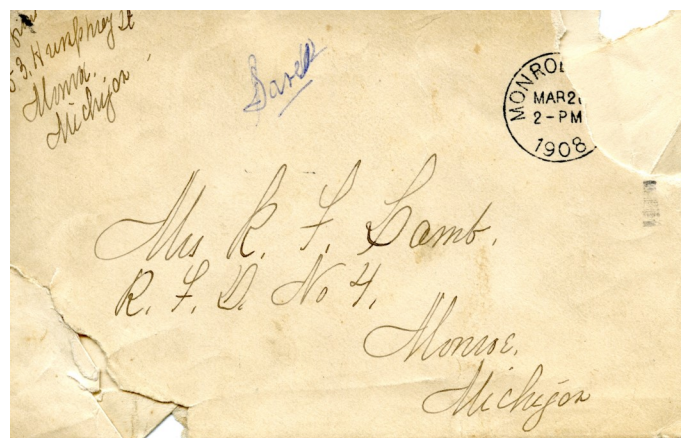 3, Humphrey St
Monroe.
Michigan
Saved
MONROE
MAR 2
2-PM
1908
Mrs R. F. Lamb.
R. F. D. No 4.
Monroe.
Michigan